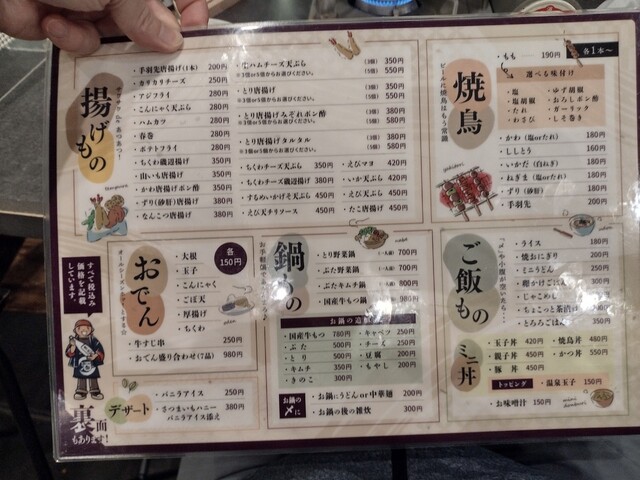 揚げもの
サクサクッ あつあつ!
・手羽先唐揚げ(1本) 200円
・カリカリチーズ 250円
・アジフライ 280円
・こんにゃく天ぷら 280円
・ハムカツ 280円
・春巻 280円
・ポテトフライ 280円
・ちくわ磯辺揚げ 350円
・山いも唐揚げ 350円
・かわ唐揚げポン酢 350円
・ずり(砂肝)唐揚げ 380円
・なんこつ唐揚げ 380円
ハムチーズ天ぷら (3個) 350円
※3個or5個からお選びください。 (5個) 550円
・とり唐揚げ (3個) 350円
※3個or5個からお選びください。 (5個) 550円
・とり唐揚げみぞれポン酢 (3個) 380円
※3個or5個からお選びください。 (5個) 580円
・とり唐揚げタルタル (3個) 380円
※3個or5個からお選びください。 (5個) 580円
・ちくわチーズ天ぷら 350円
・ちくわチーズ磯辺揚げ 380円
・するめいかげそ天ぷら 450円
・えび天チリソース 450円
・えびマヨ 420円
・いか天ぷら 420円
・えび天ぷら 450円
・たこ唐揚げ 450円
焼鳥
ビールに焼鳥はもう常識
各1本〜
・もも 190円
選べる味付け
・塩
・塩胡椒
・たれ
・わさび
・ゆず胡椒
・おろしポン酢
・ガーリック
・しそ巻き
・かわ(塩orたれ) 180円
・ししとう 160円
・いかだ(白ねぎ) 160円
・ねぎま(塩orたれ) 180円
・ずり(砂肝) 180円
・手羽先 200円
すべて税込み価格を記載しています。
おでん
オールシーズンとってもする☆
各150円
・大根
・玉子
・こんにゃく
・ごぼ天
・厚揚げ
・ちくわ
・牛すじ串 250円
・おでん盛り合わせ(7品) 980円
デザート
・バニラアイス 250円
・さつまいもハニーバニラアイス添え 380円
鍋もの
・とり野菜鍋 (一人前) 700円
・ぶた野菜鍋 (一人前) 700円
・ぶたキムチ鍋 800円
・国産牛もつ鍋 980円
お鍋の追加
・国産牛もつ 780円
・ぶた 500円
・とり 500円
・キムチ 350円
・きのこ 300円
・キャベツ 250円
・チーズ 250円
・豆腐 200円
・もやし 200円
お鍋の〆に
・お鍋にうどんor中華麺 200円
・お鍋の後の雑炊 300円
ご飯もの
・ライス 180円
・焼おにぎり 200円
・ミニうどん 250円
・ちょこっと茶漬け
・とろろごはん 350円
ミニ丼
・玉子丼 420円
・親子丼 450円
・豚丼 450円
・焼鳥丼 480円
・かつ丼 550円
トッピング ・温泉玉子 150円
・お味噌汁 150円
裏面もあります!